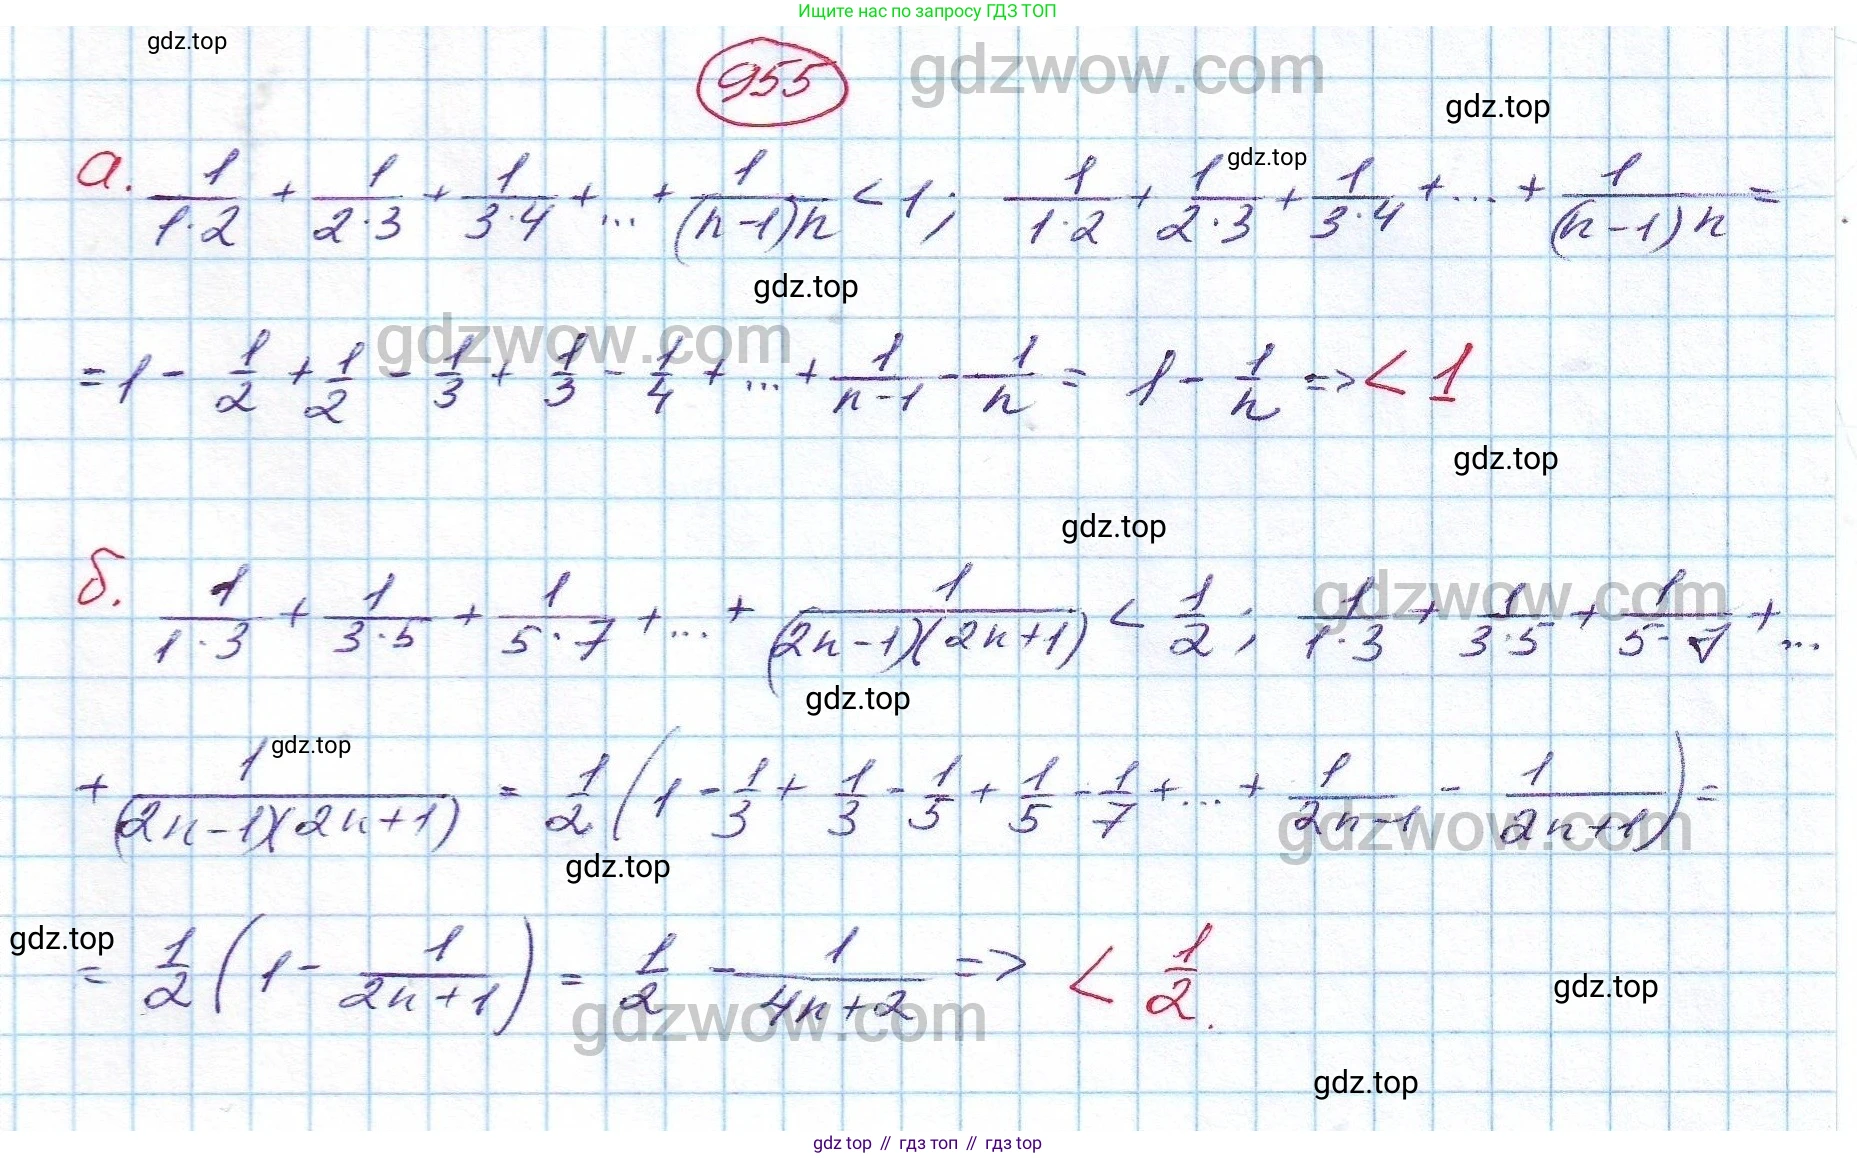 Ищите нас по запросу ГДЗ ТОП
gdz.top
955
gdzwow.com
gdz.top
а. 1/(1·2) + 1/(2·3) + 1/(3·4) + ... + 1/((n-1)n) < 1; 1/(1·2) + 1/(2·3) + 1/(3·4) + ... + 1/((n-1)n) =
gdz.top
gdz.top
gdzwow.com
= 1 - 1/2 + 1/2 - 1/3 + 1/3 - 1/4 + ... + 1/(n-1) - 1/n = 1 - 1/n => < 1
gdz.top
gdz.top
gdzwow.com
б. 1/(1·3) + 1/(3·5) + 1/(5·7) + ... + 1/((2n-1)(2n+1)) < 1/2; 1/(1·3) + 1/(3·5) + 1/(5·7) + ...
gdz.top
gdz.top
+ 1/((2n-1)(2n+1)) = 1/2 (1 - 1/3 + 1/3 - 1/5 + 1/5 - 1/7 + ... + 1/(2n-1) - 1/(2n+1)) =
gdzwow.com
gdz.top
gdz.top
= 1/2 (1 - 1/(2n+1)) = 1/2 - 1/(4n+2) => < 1/2.
gdz.top
gdzwow.com
gdz.top
gdz top // гдз топ // гдз top